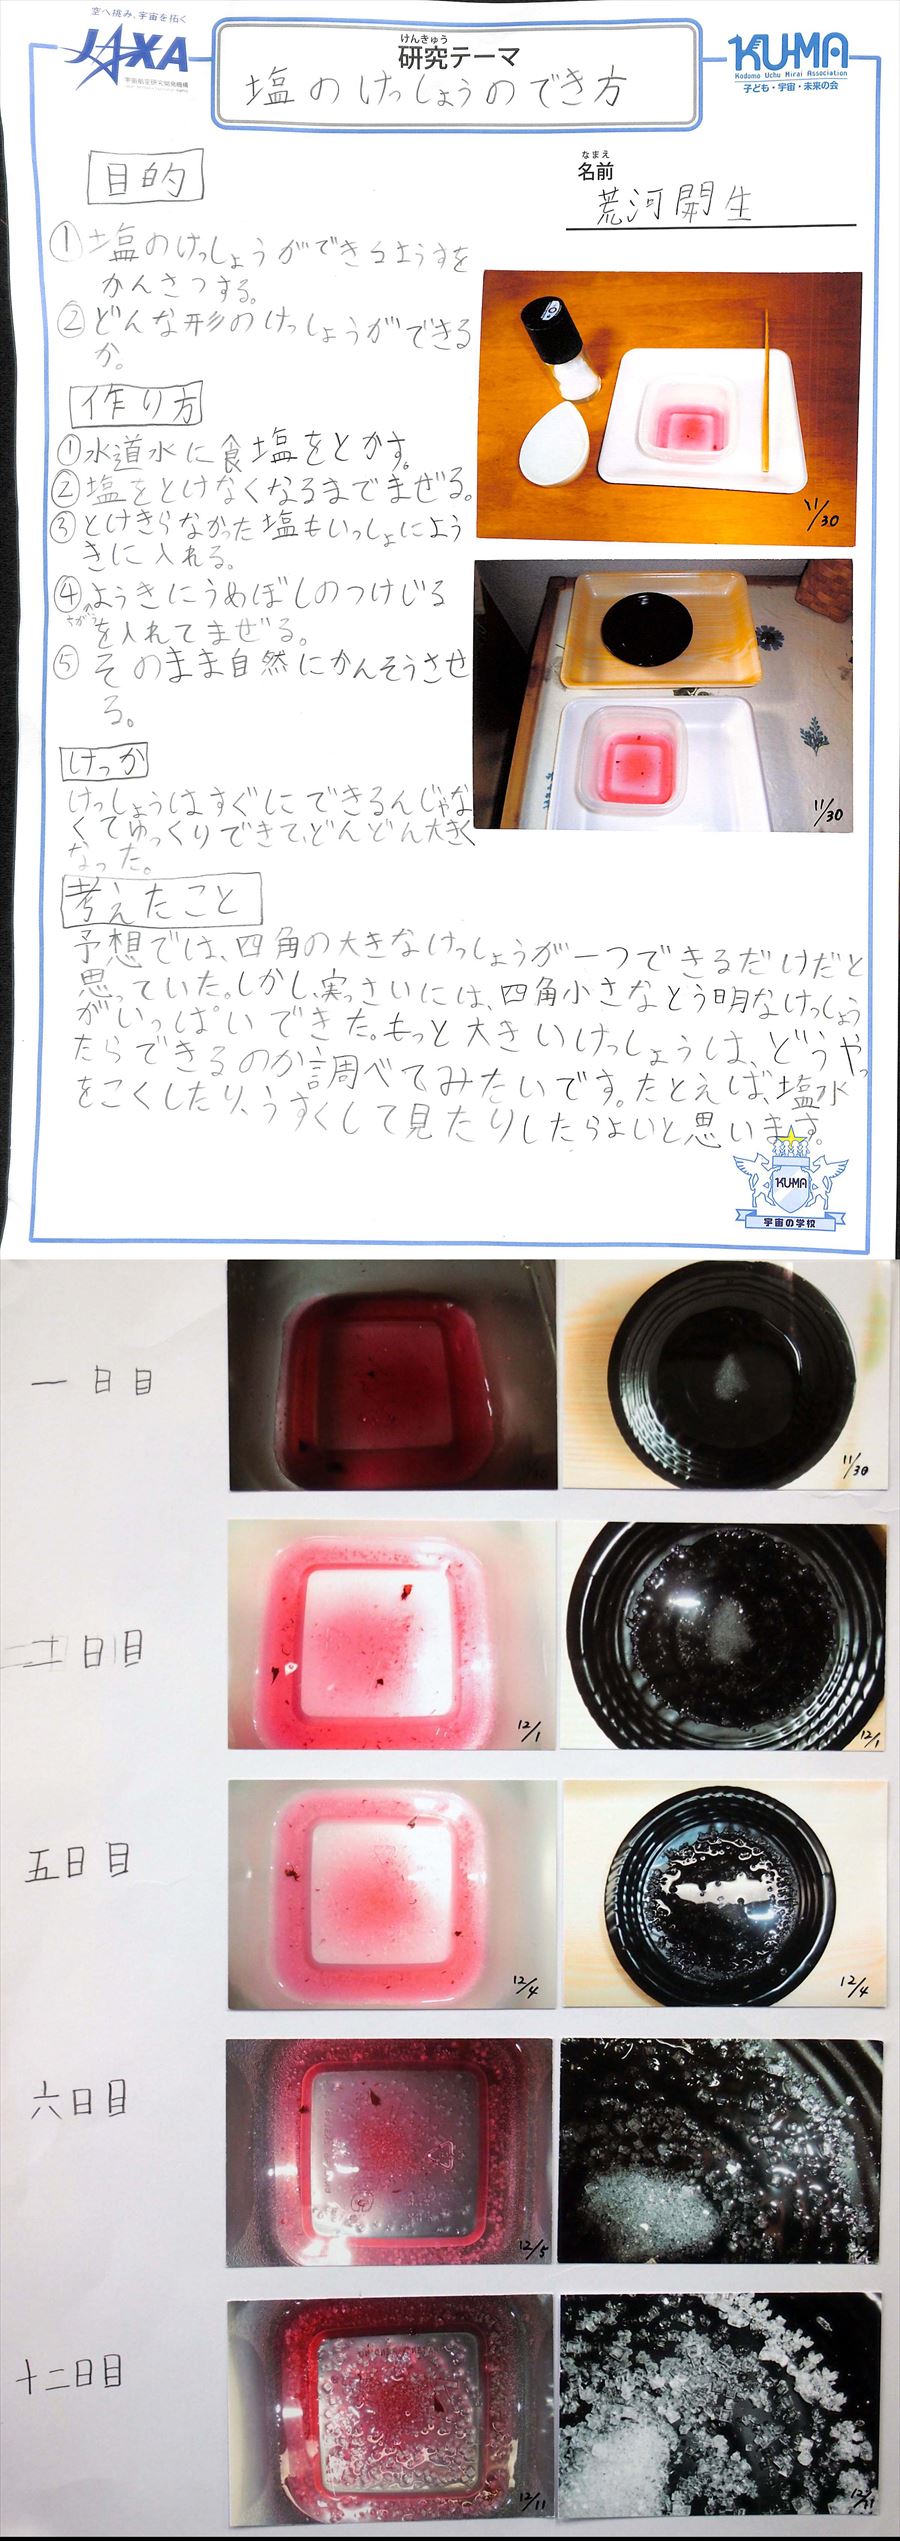 空へ挑み、宇宙を拓く
JAXA
宇宙航空研究開発機構
けんきゅう
研究テーマ
塩のけっしょうのでき方
KU-MA
Kodomo Uchu Mirai Association
子ども・宇宙・未来の会
なまえ
名前
荒河開生
目的
①塩のけっしょうができるようすを
かんさつする。
②どんな形のけっしょうができる
か。
作り方
①水道水に食塩をとかす。
②塩をとけなくなるまでまぜる。
③とけきらなかった塩もいっしょによう
きに入れる。
④ちがうようきにうめぼしのつけじる
を入れてまぜる。
⑤そのまま自然にかんそうさせ
る。
11/30
11/30
けっか
けっしょうはすぐにできるんじゃな
くてゆっくりできて、どんどん大きく
なった。
考えたこと
予想では、四角の大きなけっしょうが一つできるだけだと
思っていた。しかし、実っさいには、四角小さなとう明なけっしょう
がいっぱいできた。もっと大きいけっしょうは、どうやっ
たらできるのか調べてみたいです。たとえば、塩水
をこくしたり、うすくして見たりしたらよいと思います。
KU-MA
宇宙の学校
一日目
11/30
11/30
二日目
12/1
12/1
五日目
12/4
12/4
六日目
12/5
十二日目
12/11
12/11